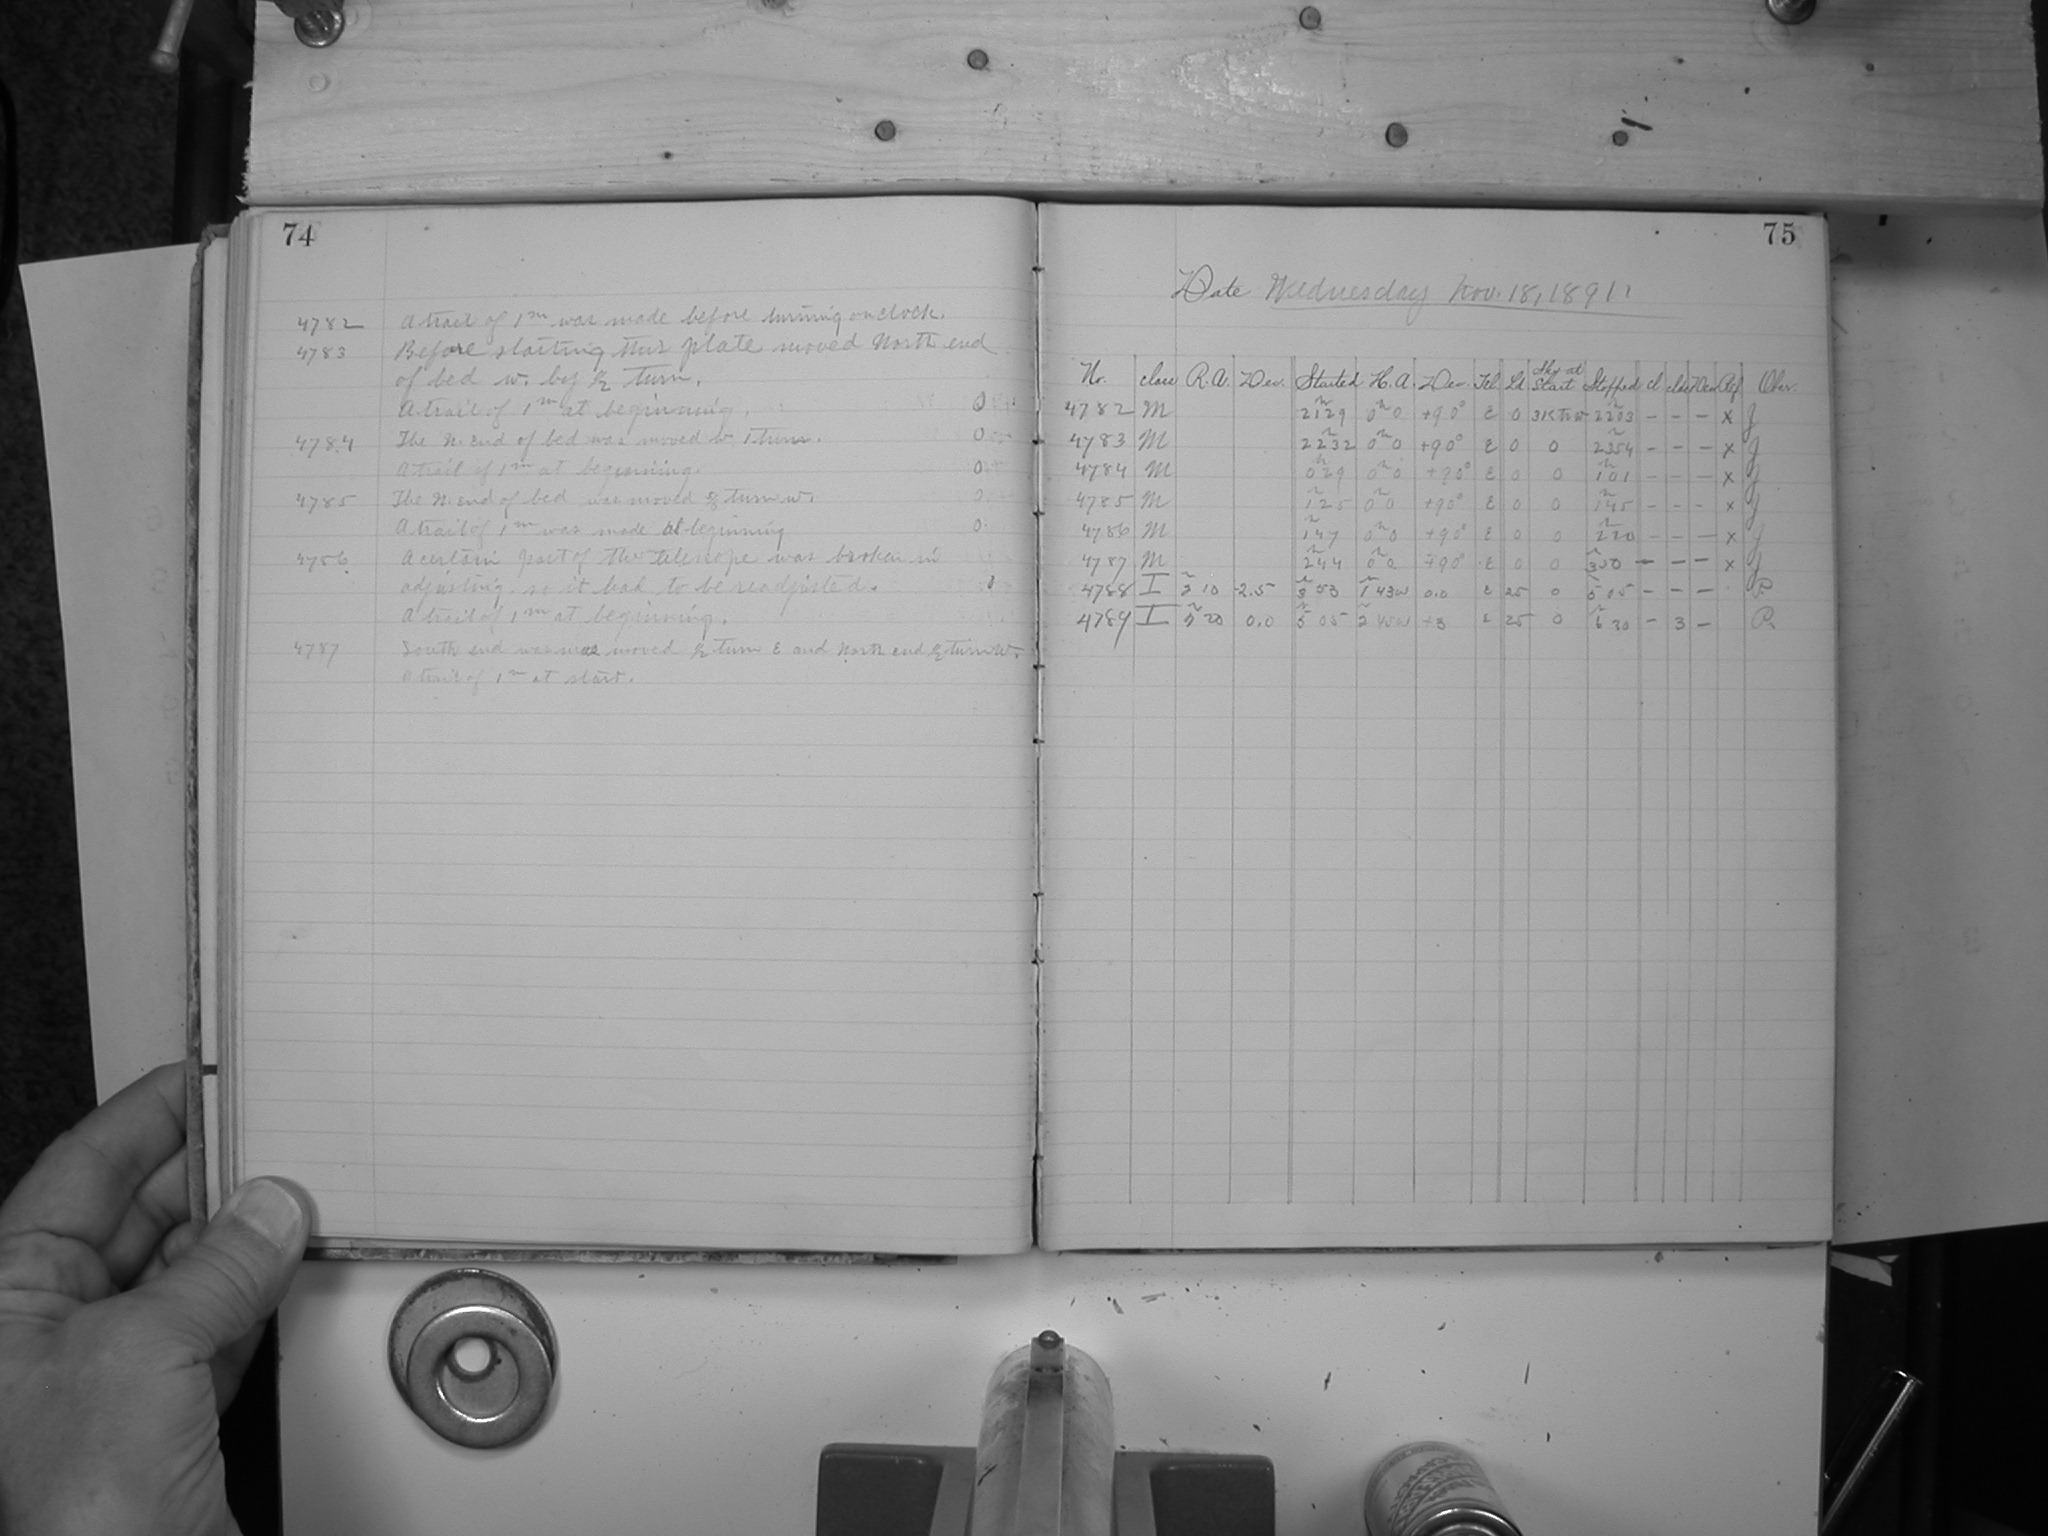 74
4782 A trail of 1m was made before turning on clock.
4783 Before starting this plate moved North end
of bed w. by ½ turn.
A trail of 1m at beginning. 0
4784 The N. end of bed was moved w. 1 turn. 0
A trail of 1m at beginning. 0
4785 The N. end of bed was moved ½ turn w. 0
A trail of 1m was made at beginning 0
4786 A certain part of the Telescope was broken in
adjusting so it had to be readjusted.
A trail of 1m at beginning.
4787 South end was moved ½ turn E and North end ½ turn W.
A trail of 1m at start.
75
Date Wednesday Nov. 18, 1891.
No. class R.A. Dec. Started H.A. Dec. Tel. Ld Sky at Start Stopped cl class Dec Ref Obser.
4782 M 21h29 0h0 +90° E 0 22h03 - - - x J
4783 M 22h32 0h0 +90° E 0 0 23h54 - - - x J
4784 M 0h29 0h0 +90° E 0 0 1h01 - - - x J
4785 M 1h25 0h0 +90° E 0 0 1h45 - - - x J
4786 M 1h47 0h0 +90° E 0 0 2h20 - - - x J
4787 M 2h44 0h0 +90° E 0 0 3h50 - - - x J
4788 I 2h10 -2.5 3h53 1h43w 0.0 E 25 0 5h05 - - - P
4789 I 2h20 0.0 5h05 2h45w +3 E 25 0 6h30 - 3 - P.